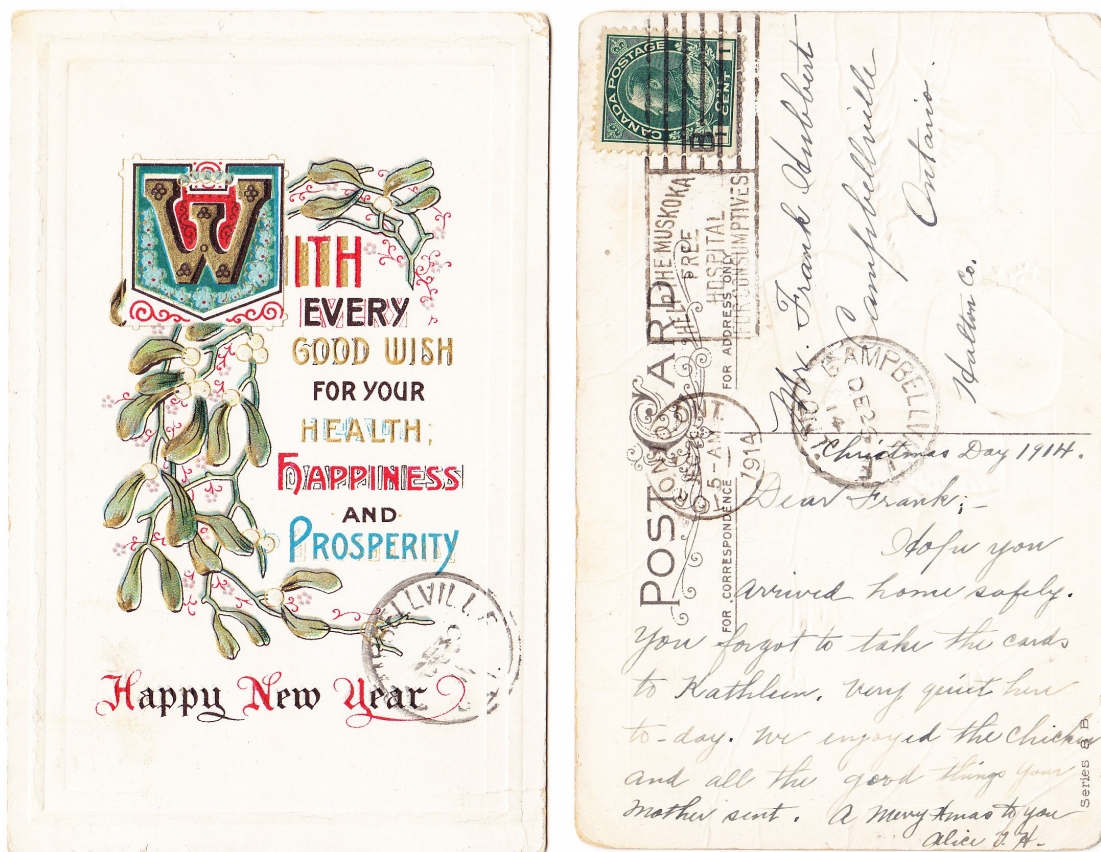 WITH
EVERY
GOOD WISH
FOR YOUR
HEALTH;
HAPPINESS
AND
PROSPERITY
Happy New Year
CANADA POSTAGE
1 ONE CENT 1
HELP THE MUSKOKA
FREE
HOSPITAL
FOR CONSUMPTIVES
POST CARD
FOR ADDRESS ONLY
FOR CORRESPONDENCE
Mr. Frank Hubbert
Campbellville
Ontario.
Halton Co.
CAMPBELLVILLE
DE 28
14
ONT
5-AM
1914
Christmas Day 1914.
Dear Frank;-
Hope you
arrived home safely.
You forgot to take the cards
to Kathleen. Very quiet here
to-day. We enjoyed the chicken
and all the good things your
mother sent. A Merry Xmas to you
Alice V. H.-
Series 8 B